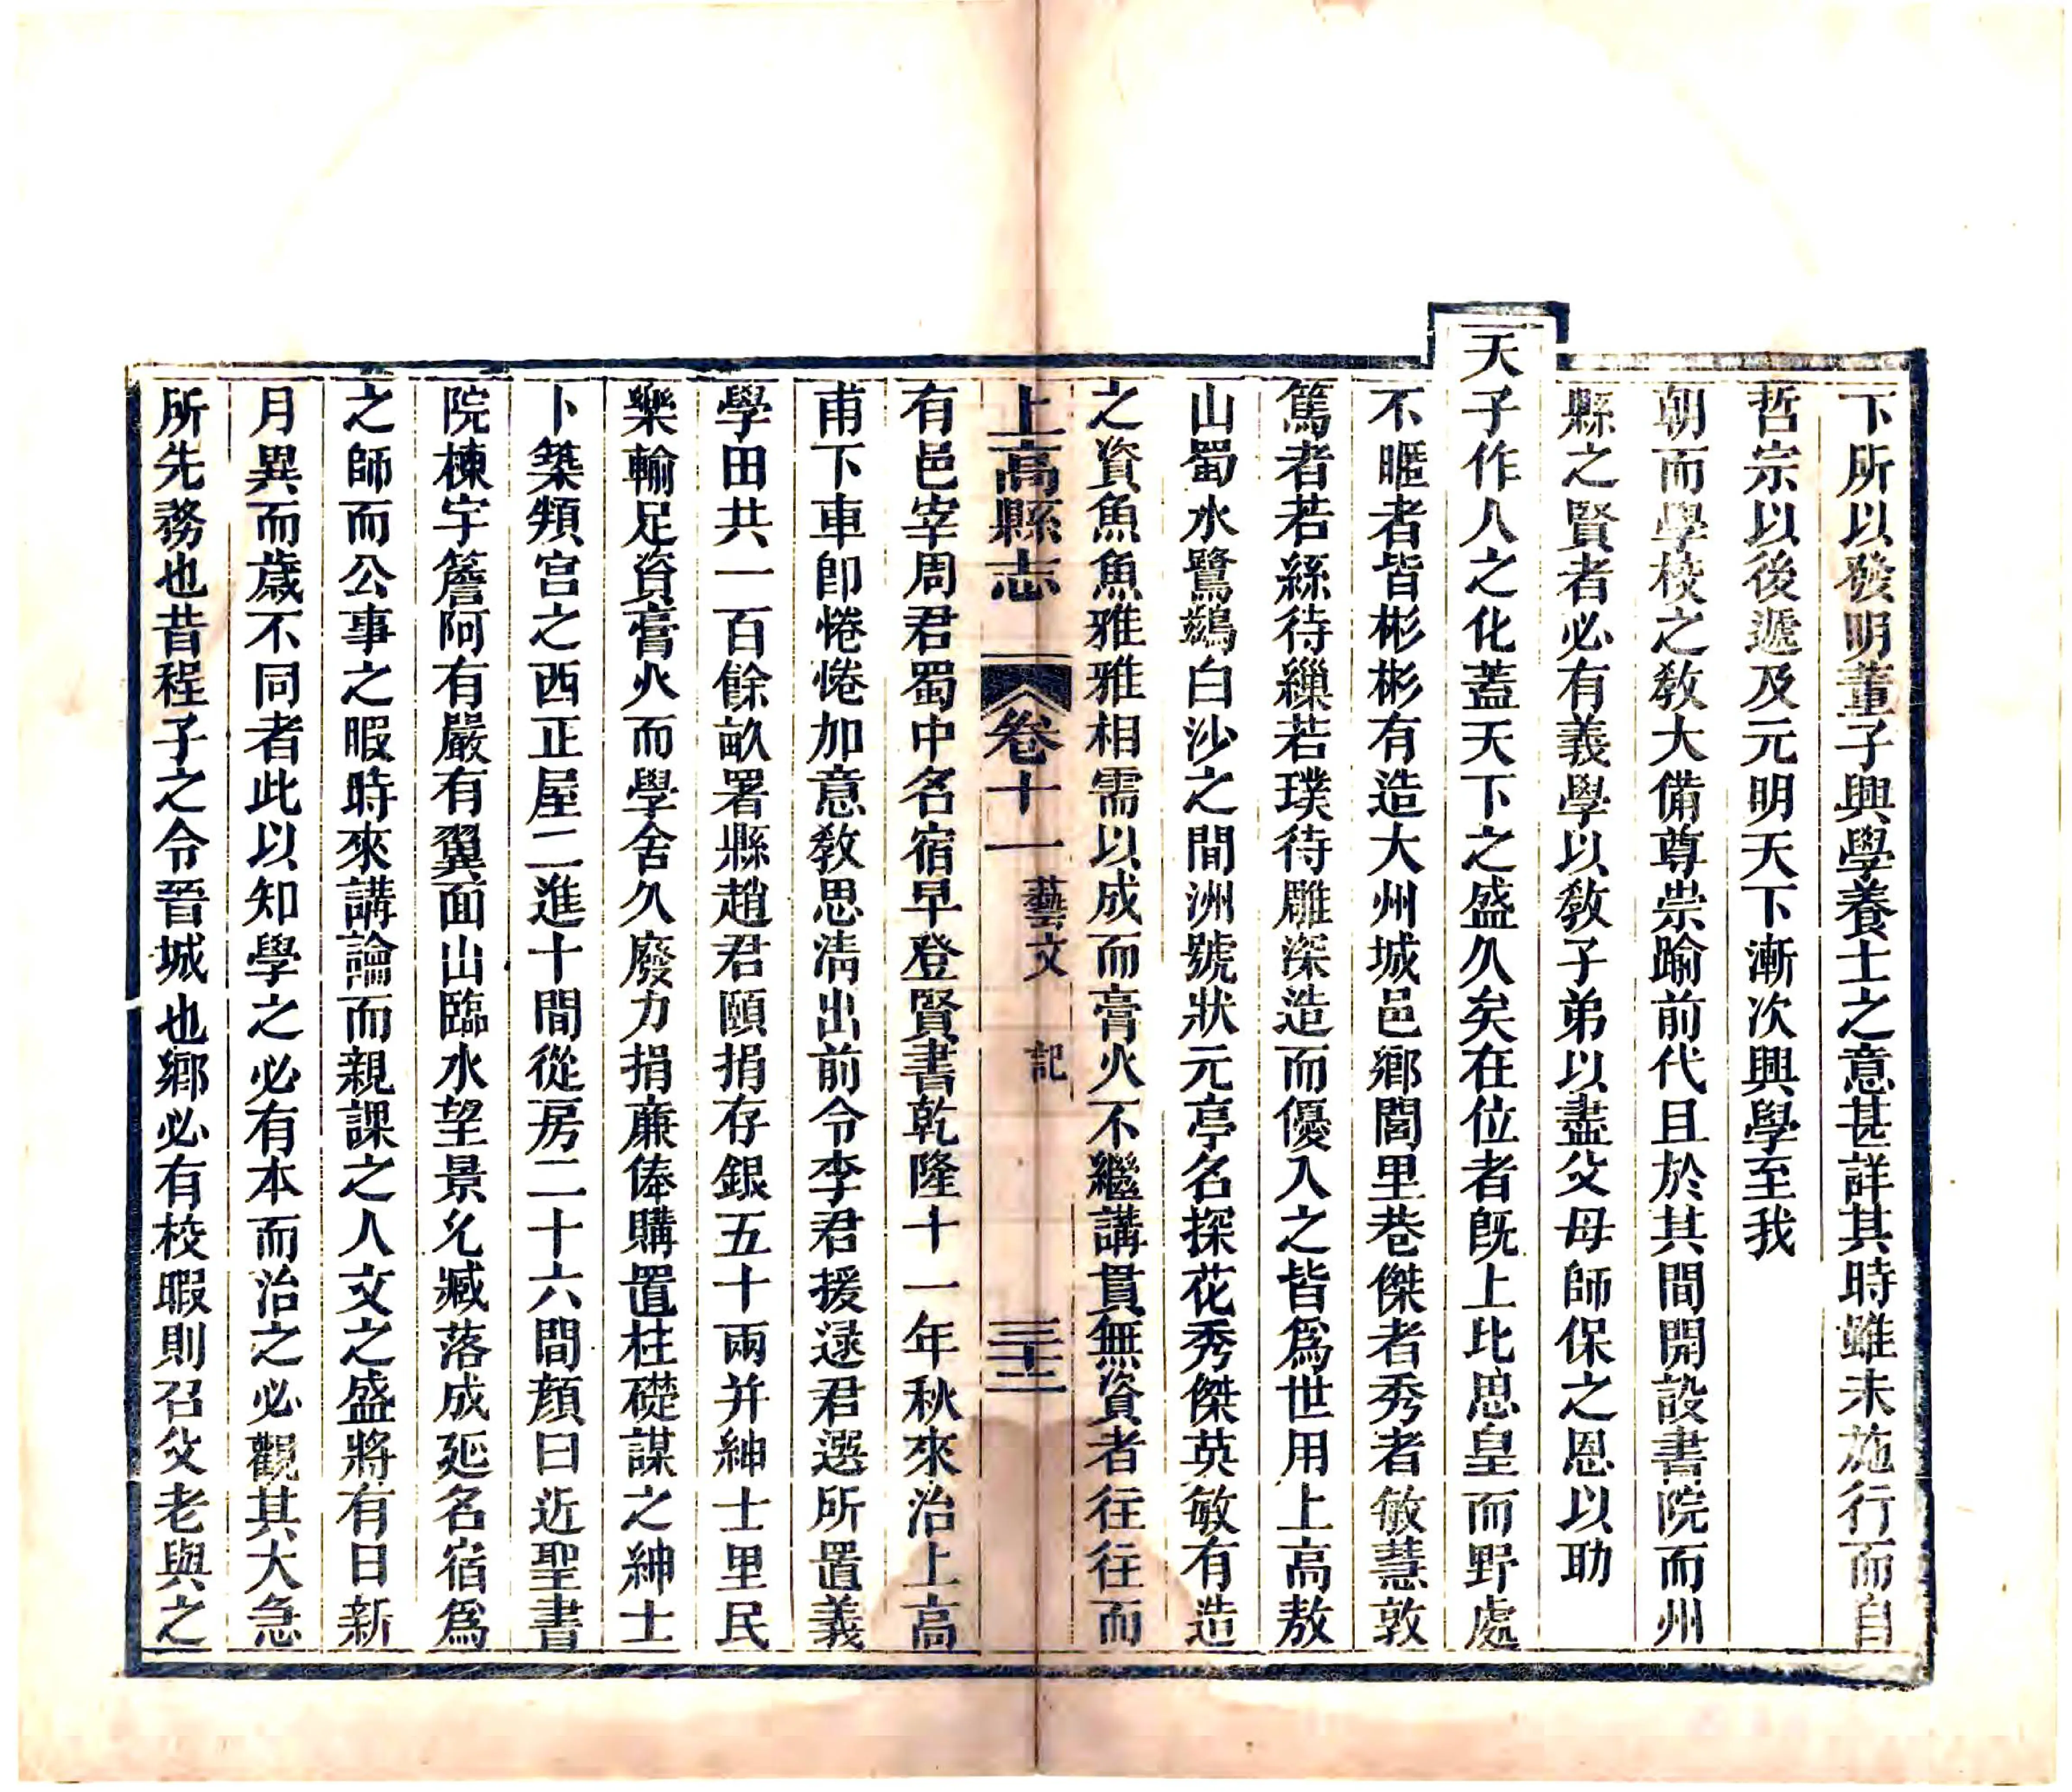 下所以發明董子興學養士之意甚詳其時雖未施行而自
哲宗以後遞及元明天下漸次興學至我
朝而學校之敎大備尊崇踰前代且於其間開設書院而州
縣之賢者必有義學以敎子弟以盡父母師保之恩以助
天子作人之化蓋天下之盛久矣在位者旣上比思皇而野處
不暱者皆彬彬有造大州城邑鄕閭里巷傑者秀者敏慧敦
篤者若絲待繅若璞待雕深造而優入之皆爲世用上高敖
山蜀水鷺鷀白沙之間洲號狀元亭名探花秀傑英敏有造
之資魚魚雅雅相需以成而膏火不繼講貫無資者往往而
上高縣志
卷十一
藝文
記
三十二
有邑宰周君蜀中名宿早登賢書乾隆十一年秋來治上高
甫下車卽惓惓加意敎思淸出前令李君援逯君選所置義
學田共一百餘畝署縣趙君頤捐存銀五十兩并紳士里民
樂輸足資膏火而學舍久廢力捐廉俸購置柱礎謀之紳士
卜築頖宮之西正屋二進十間從房二十六間顏曰近聖書
院棟宇簷阿有嚴有翼面山臨水望景允臧落成延名宿爲
之師而公事之暇時來講論而親課之人文之盛將有日新
月異而歲不同者此以知學之必有本而治之必觀其大急
所先務也昔程子之令晉城也鄕必有校暇則召父老與之